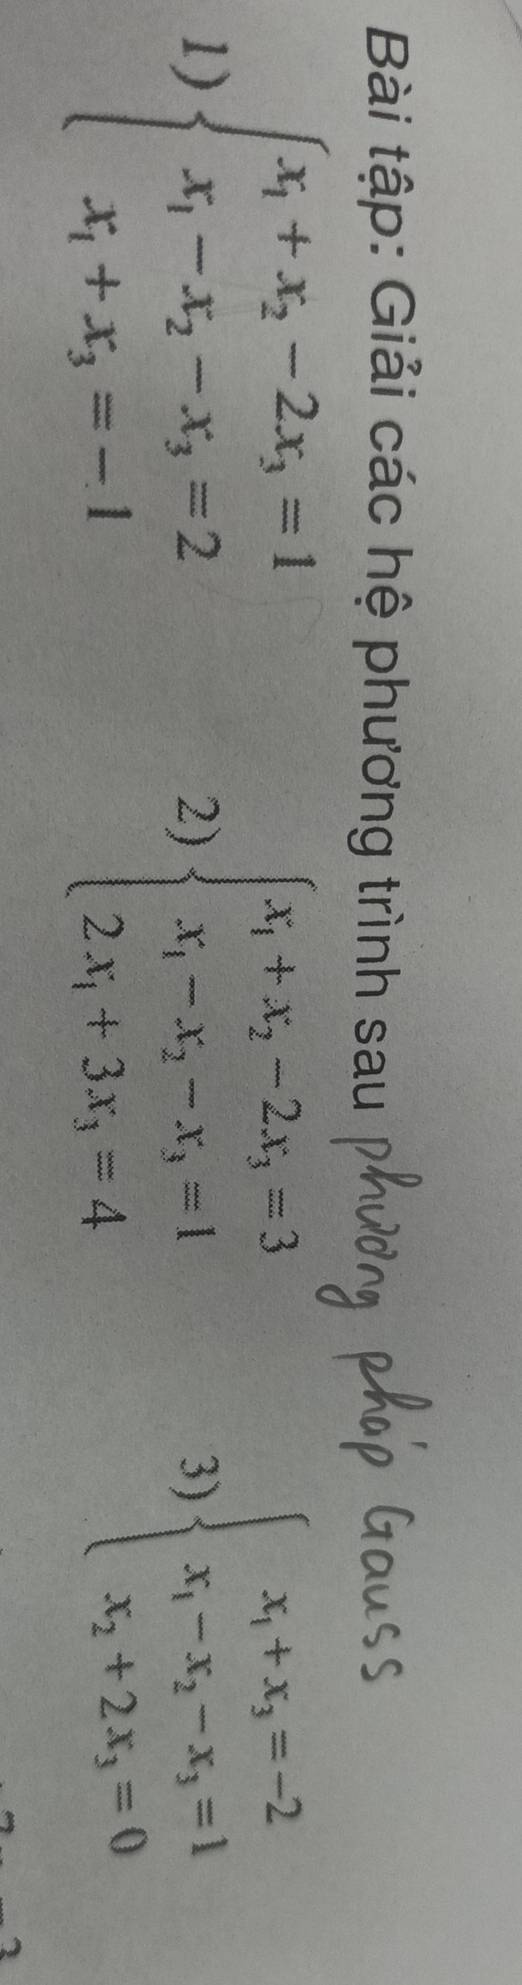 Bài tập: Giải các hệ phương trình sau phương pháp Gauss
1) { x₁ + x₂ − 2x₃ = 1
x₁ − x₂ − x₃ = 2
x₁ + x₃ = −1
2) { x₁ + x₂ − 2x₃ = 3
x₁ − x₂ − x₃ = 1
2x₁ + 3x₃ = 4
3) { x₁ + x₃ = −2
x₁ − x₂ − x₃ = 1
x₂ + 2x₃ = 0